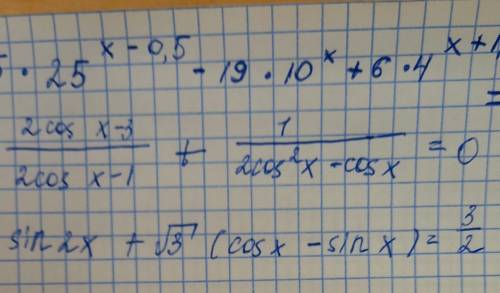 5 · 25^{x-0,5} - 19 · 10^x + 6 · 4^{x+1} =
\frac{2cos x-3}{2cos x-1} + \frac{1}{2cos^2x - cosx} = 0
sin2x + √3 (cosx - sinx) = \frac{3}{2}